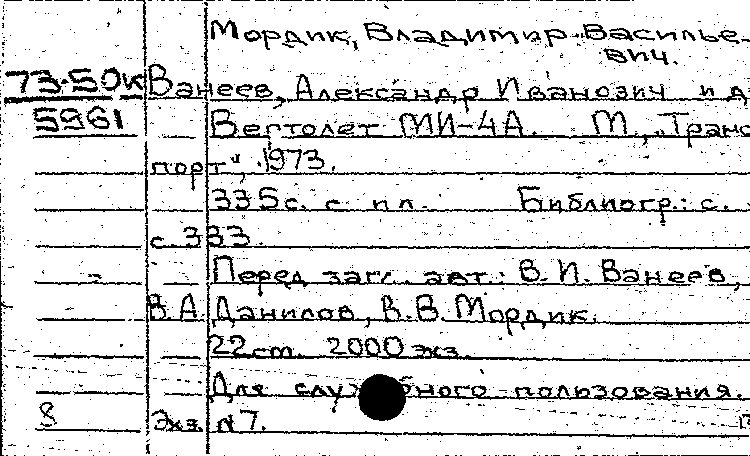 Мордик, Владимир Василье-
вич.
73-50к Ванеев, Александр Иванович и д
5961 Вертолет МИ-4А. М., „Транс
порт", 1973.
335с. с ил. Библиогр.: с.
с. 333.
Перед загл. авт.: В. И. Ванеев,
В. А. Данилов, В. В. Мордик.
22 см. 2000 экз.
Для служебного пользования.
8 Экз. N7.